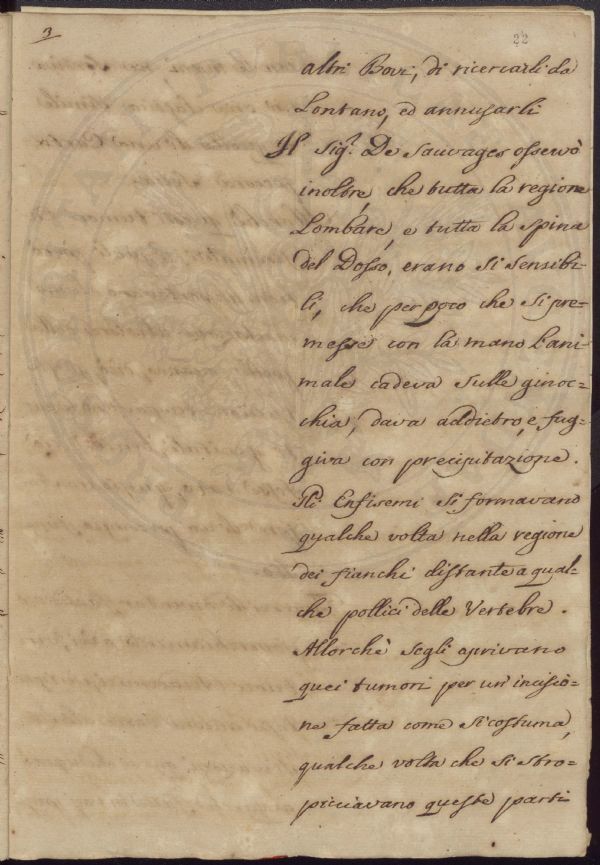 3
22
altri Bovi, di ricercarli da
Lontano, ed annusarli
Il Sig.r De Sauvages osservò
inoltre, che tutta la regione
Lombare, e tutta la spina
del Dosso, erano sì sensibi-
li, che per poco che si pre-
messe con la mano l'ani-
male cadeva sulle ginoc-
chia, dava addietro, e fug-
giva con precipitazione.
Gli Enfisemi si formavano
qualche volta nella regione
dei fianchi distante a qual-
che pollici delle Vertebre.
Allorchè segli aprivano
quei tumori per un'incisio=
ne fatta come si costuma,
qualche volta che si stro-
picciavano queste parti